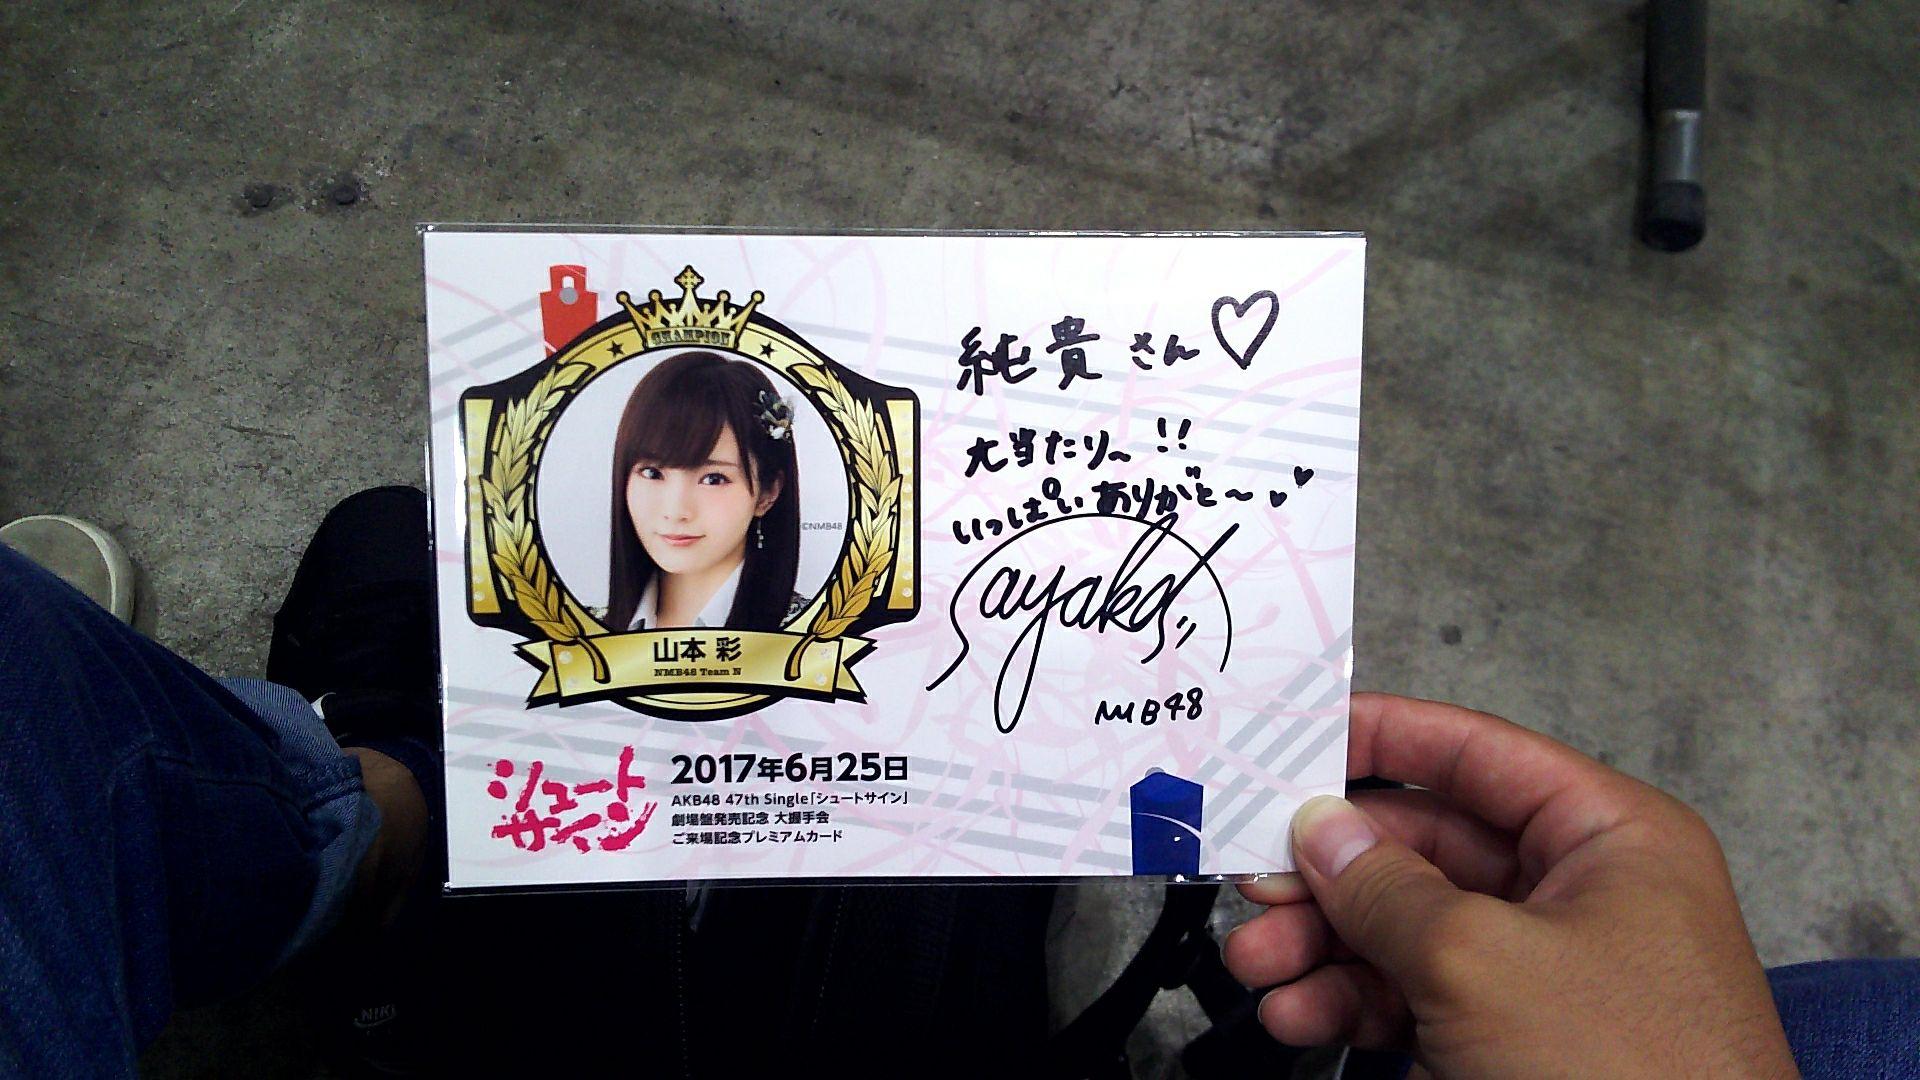 CHAMPION
©NMB48
山本 彩
NMB48 Team N
純貴さん♡
大当たり〜!!
いっぱいありがと〜♥♥
Sayaka
NMB48
シュート
サイン
2017年6月25日
AKB48 47th Single「シュートサイン」
劇場盤発売記念 大握手会
ご来場記念プレミアムカード
NIKE